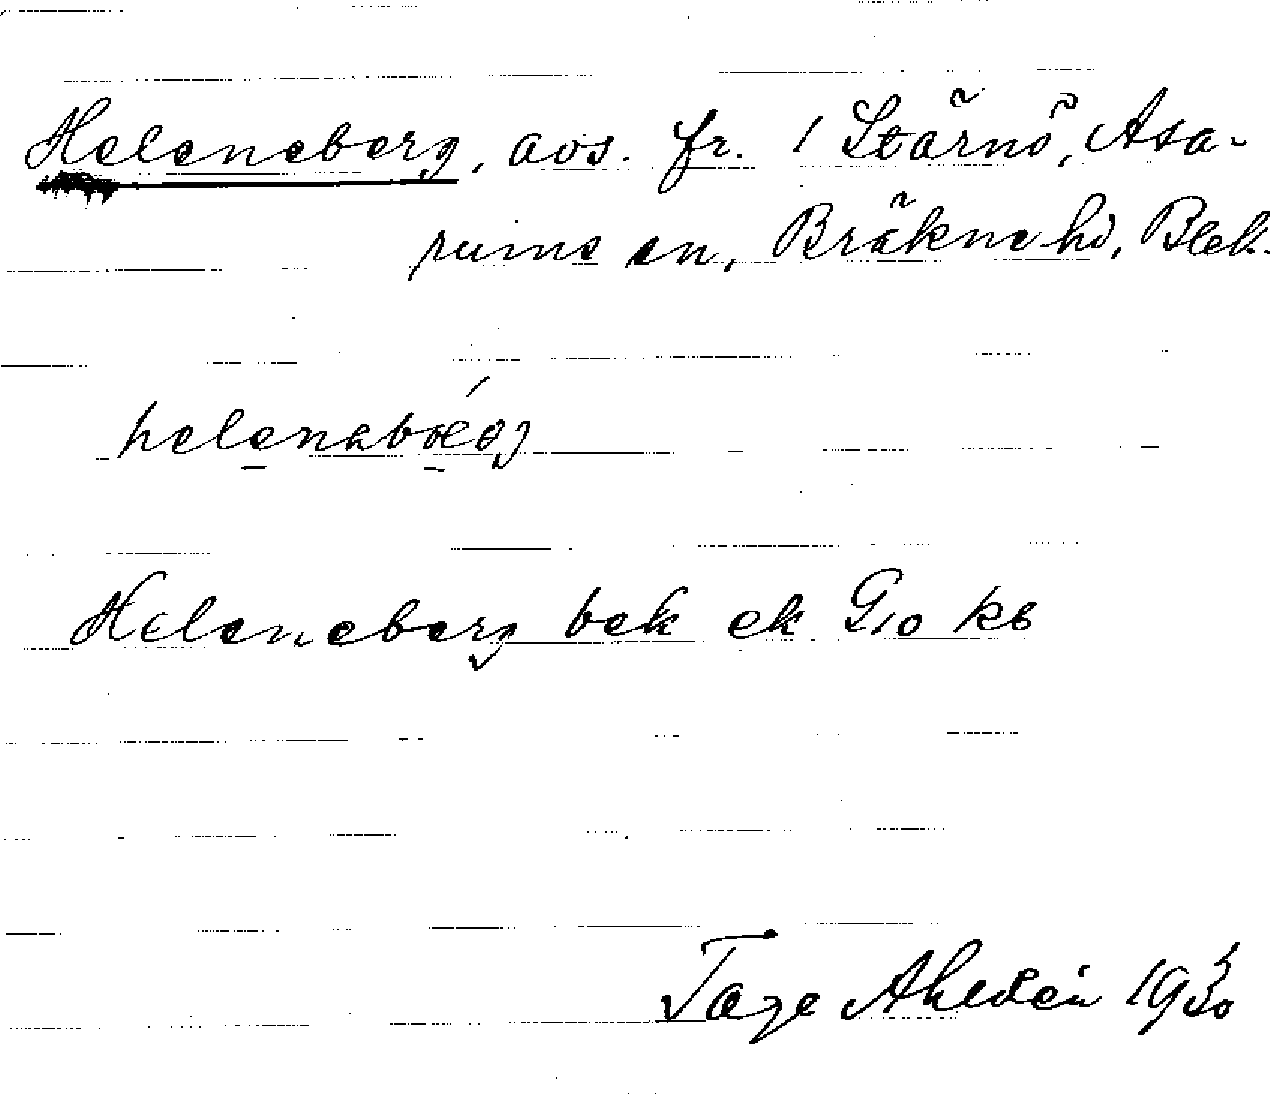 Heleneberg, avs. fr. 1 Stärnö, Asa-
rums sn, Bräkne hd, Blek.
helenabærg
Heleneberg bek ek G10 kb
Tage Ahldén 1930